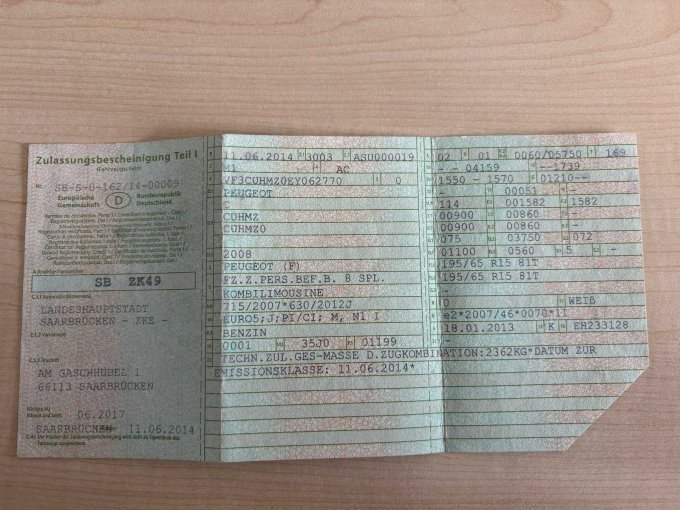 Zulassungsbescheinigung Teil I
(Fahrzeugschein)
Nr. SB-S-0-162/14-00009
Europäische Gemeinschaft
D
Bundesrepublik Deutschland
SB ZK49
LANDESHAUPTSTADT
SAARBRÜCKEN - ZKE -
C.1.3 Anschrift
AM GASCHHÜBEL 1
66113 SAARBRÜCKEN
06.2017
SAARBRÜCKEN 11.06.2014
11.06.2014 3003 ASU000019
M1 AC
VF3CUHMZ0EY062770 0
PEUGEOT
C
CUHMZ
CUHMZ0
-
2008
PEUGEOT (F)
FZ.Z.PERS.BEF.B. 8 SPL.
KOMBILIMOUSINE
715/2007*630/2012J
EURO5;J;PI/CI; M, N1 I
BENZIN
0001 35J0 01199
TECHN.ZUL.GES-MASSE D.ZUGKOMBINATION:2362KG*DATUM ZUR
EMISSIONSKLASSE: 11.06.2014*
02 01 0060/05750 169
- - 04159 --1739
1550 - 1570 01210--
- 00051 -
114 001582 1582
00900 00860 -
00900 00860 -
075 03750 072
01100 0560 5 -
195/65 R15 81T
195/65 R15 81T
-
0 WEIß
e2*2007/46*0070*11
18.01.2013 K EH233128